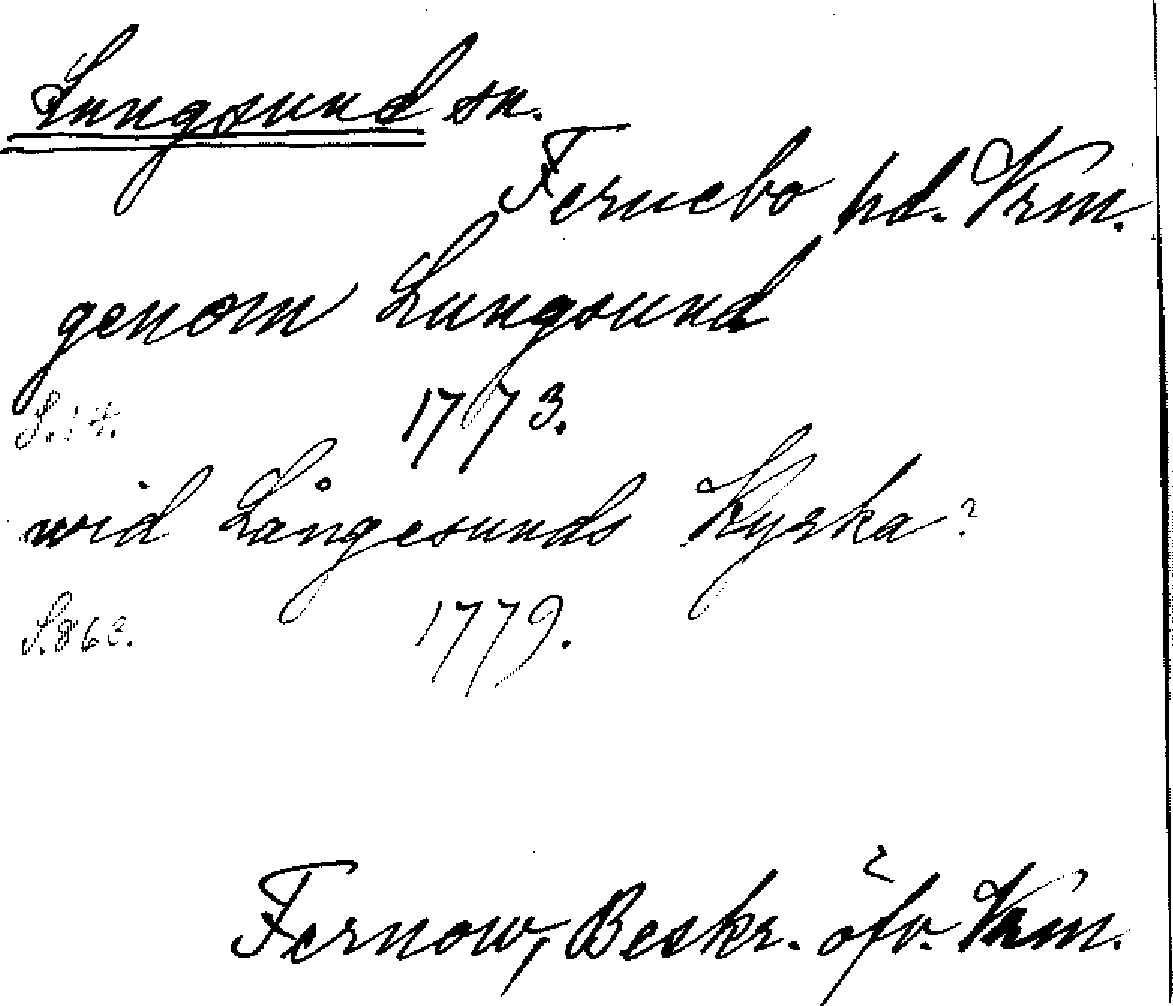 Lungsund sn.
Fernebo hd. Vrm.
genom Lungsund
S. 14. 1773.
wid Långesunds Kyrka?
S. 863. 1779.
Fernow, Beskr. öfv. Vrm.